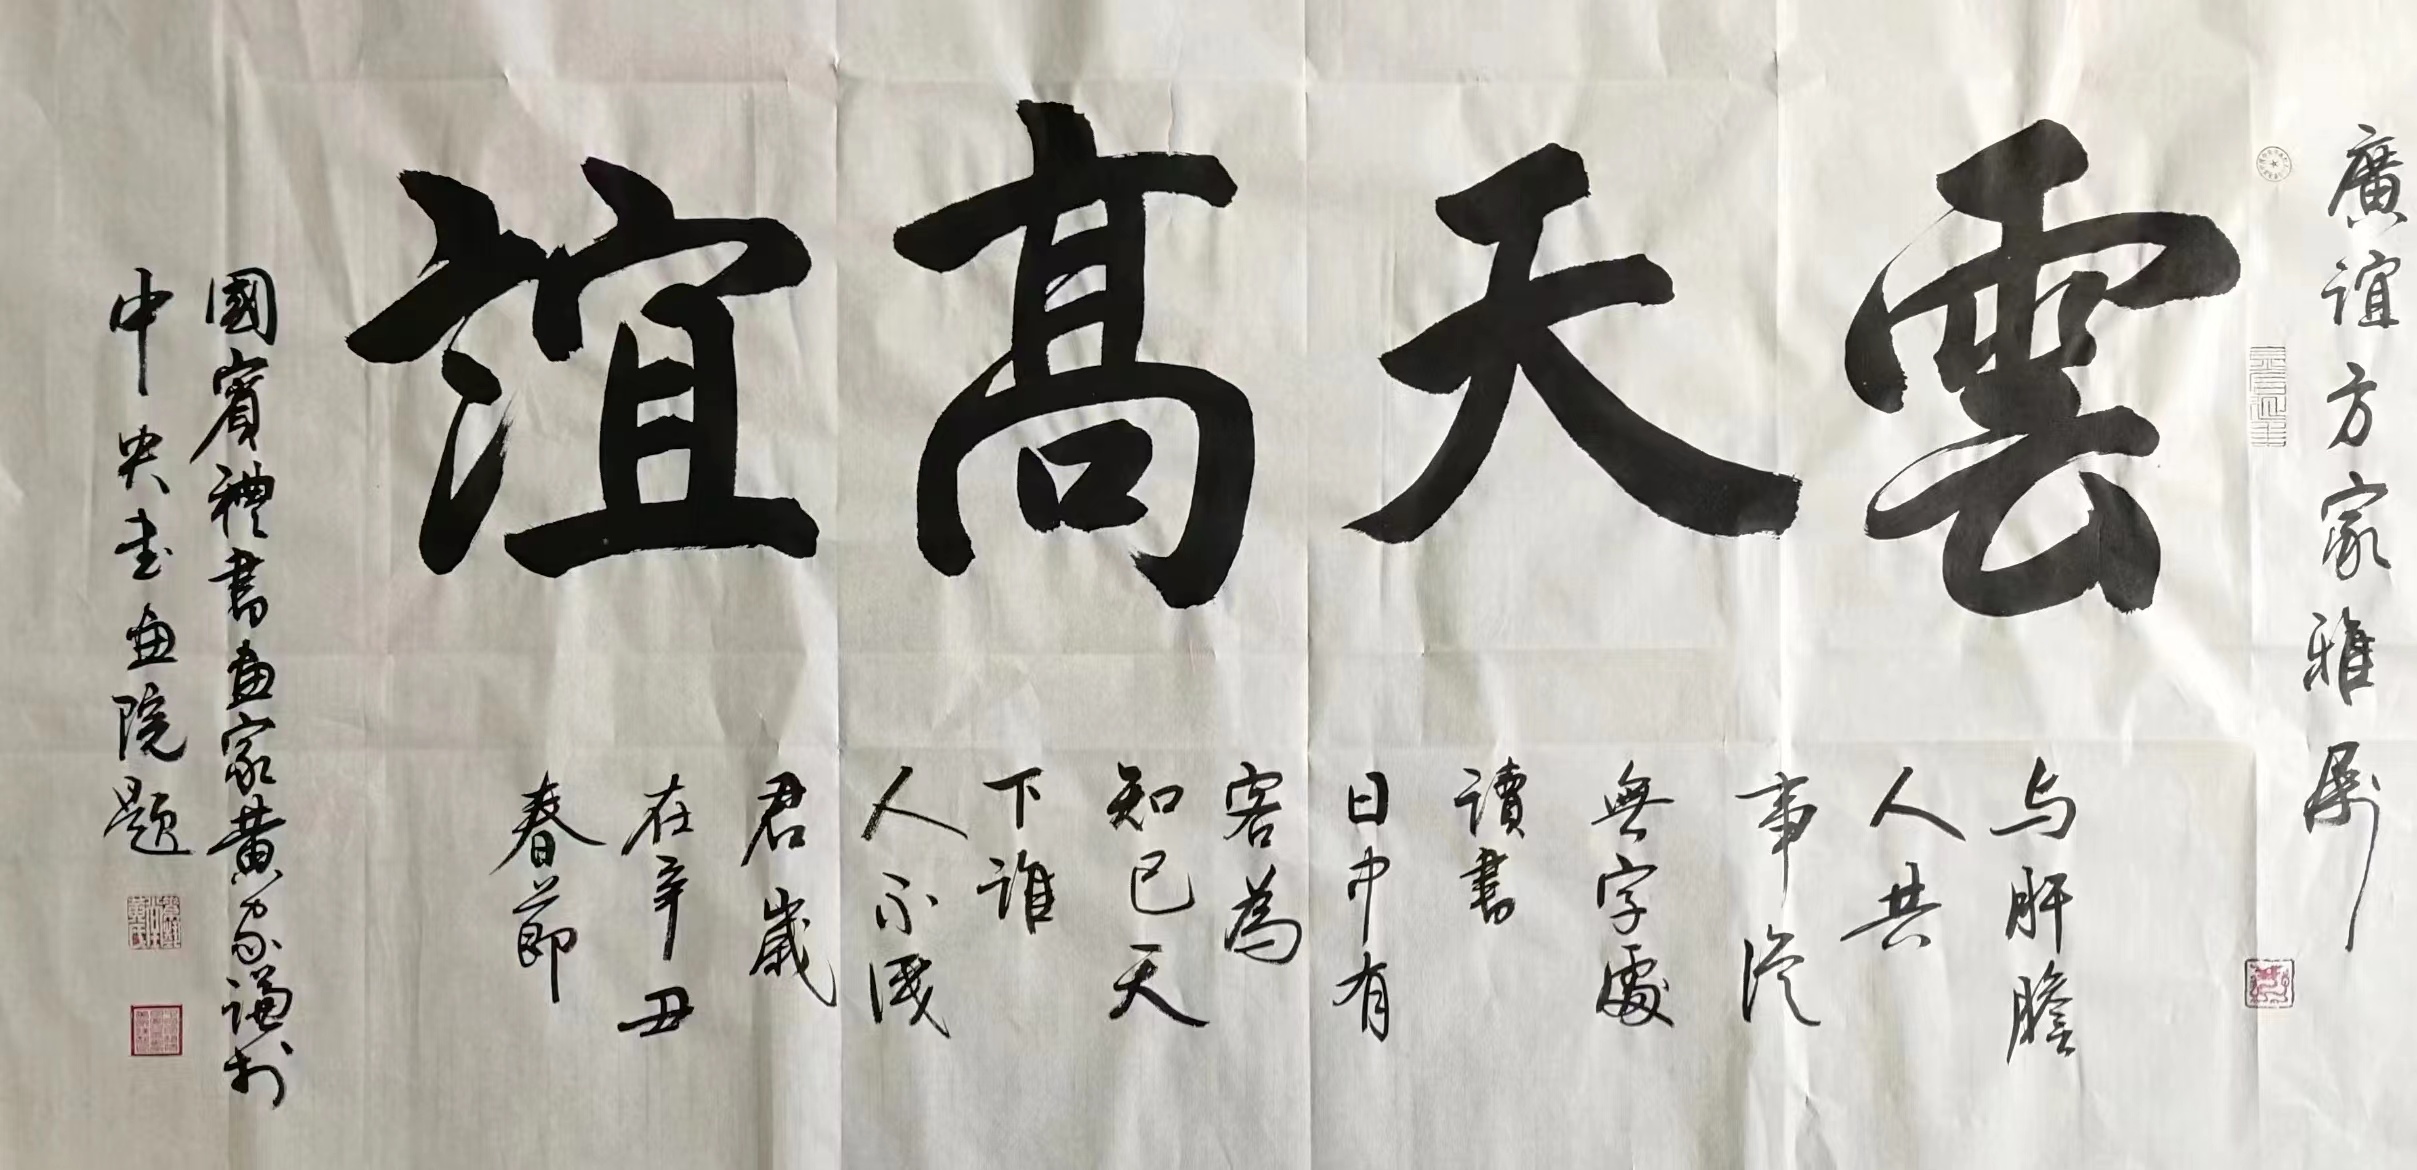 廣誼方家雅屬
雲天高誼
与肝膽
人共
事從
無字處
讀書
日中有
客為
知己天
下誰
人不識
君歲
在辛丑
春節
國賓禮書畫家黄家謙於
中央书画院題